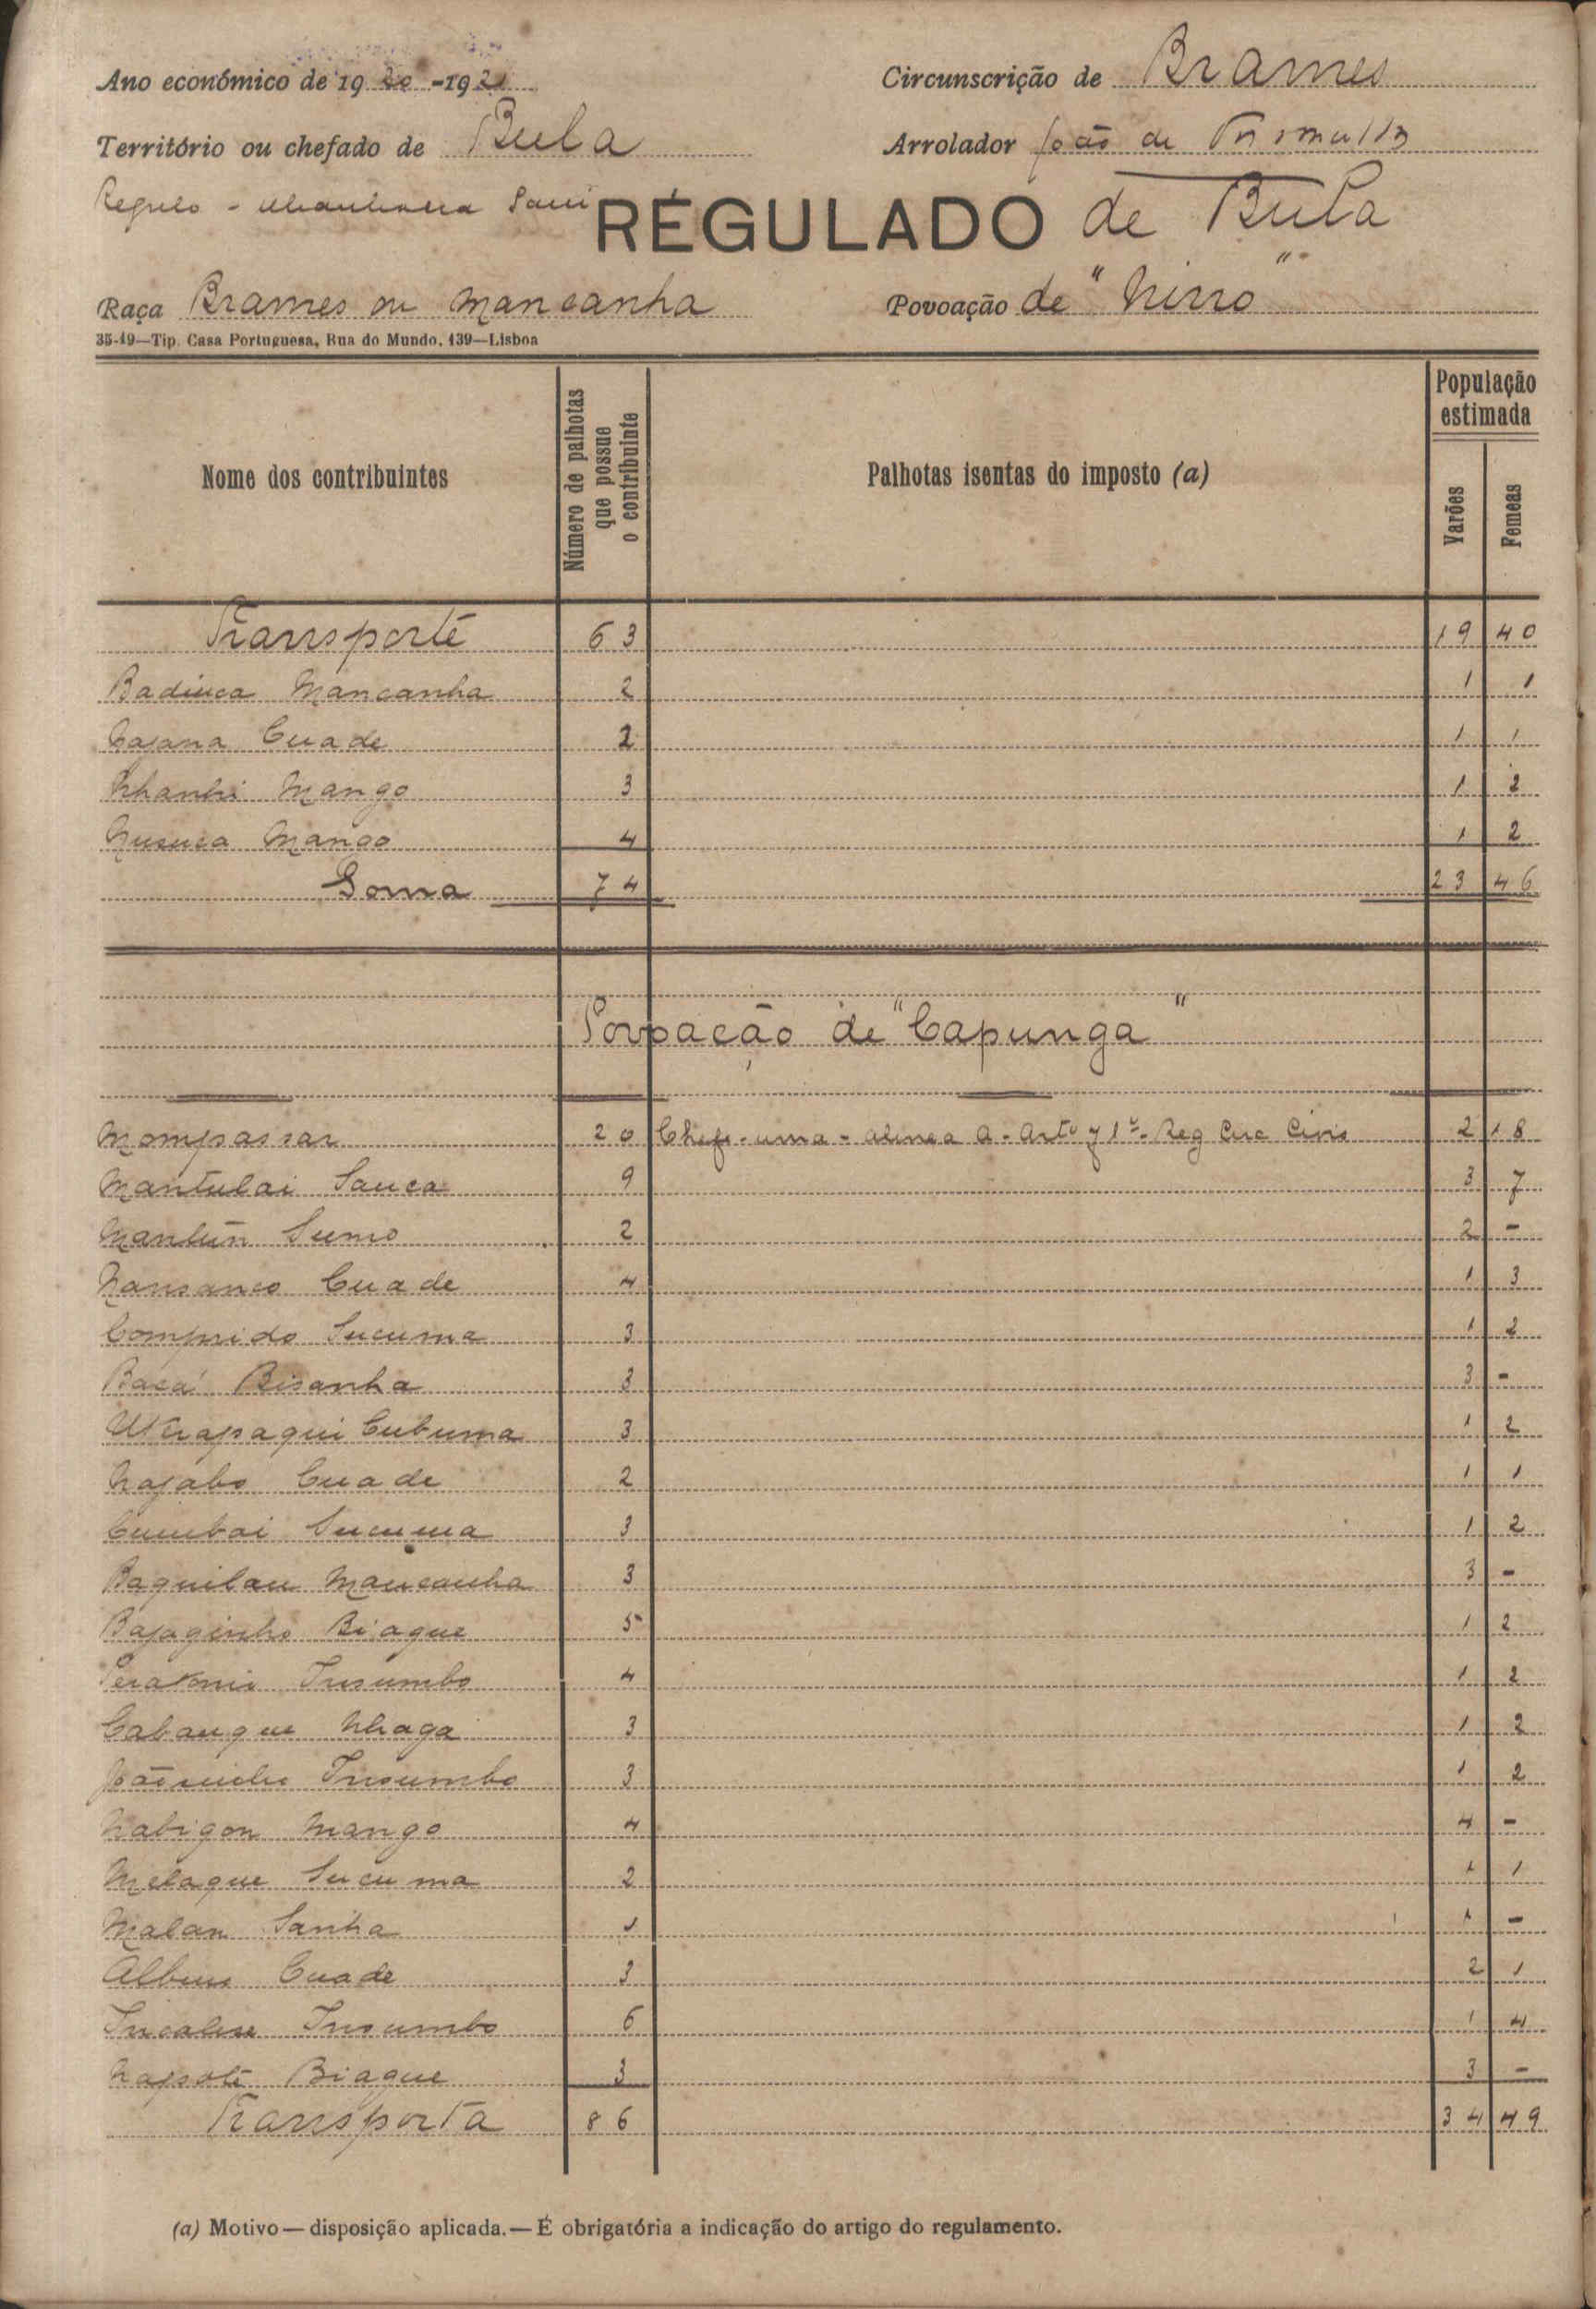 Ano económico de 1920-1921
Circunscrição de Brames
Território ou chefado de Bula
Arrolador João de
Regulo -
REGULADO de Bula
Raça Brames ou Mancanha
Povoação de "Ninno"
35-19—Tip. Casa Portuguesa, Rua do Mundo, 139—Lisboa
Nome dos contribuintes
Número de palhotas que possue o contribuinte
Palhotas isentas do imposto (a)
População estimada
Varões
Femeas
Transporte 63 19 40
Badiuca Mancanha 2 1 1
Cajana Cuade 2 1 1
Nhanhi Mango 3 1 2
Nusuca Mango 4 1 2
Soma 74 23 46
Povoação de "Capunga"
Mompassar 20 Chefe - uma - alinea a - Artº 71º - Reg Circ Civis 2 18
Mantulai Sauca 9 3 7
Mantun Sumo 2 2 -
Nansanco Cuade 4 1 3
Comprido Sucuma 3 1 2
Bacá Bisanha 3 3 -
Cubuma 3 1 2
Najabo Cuade 2 1 1
Cumbai Sucuma 3 1 2
Baquilau Mancanha 3 3 -
Bajaginho Biague 5 1 2
Insumbo 4 1 2
Cabangue Nhaga 3 1 2
Joãosinho Insumbo 3 1 2
Nabigon Mango 4 4 -
Melaque Sucuma 2 1 1
Malan Sanha 1 1 -
Albino Cuade 3 2 1
Insumbo 6 1 4
Napoté Biague 3 3 -
Transporta 86 34 49
(a) Motivo — disposição aplicada. — É obrigatória a indicação do artigo do regulamento.